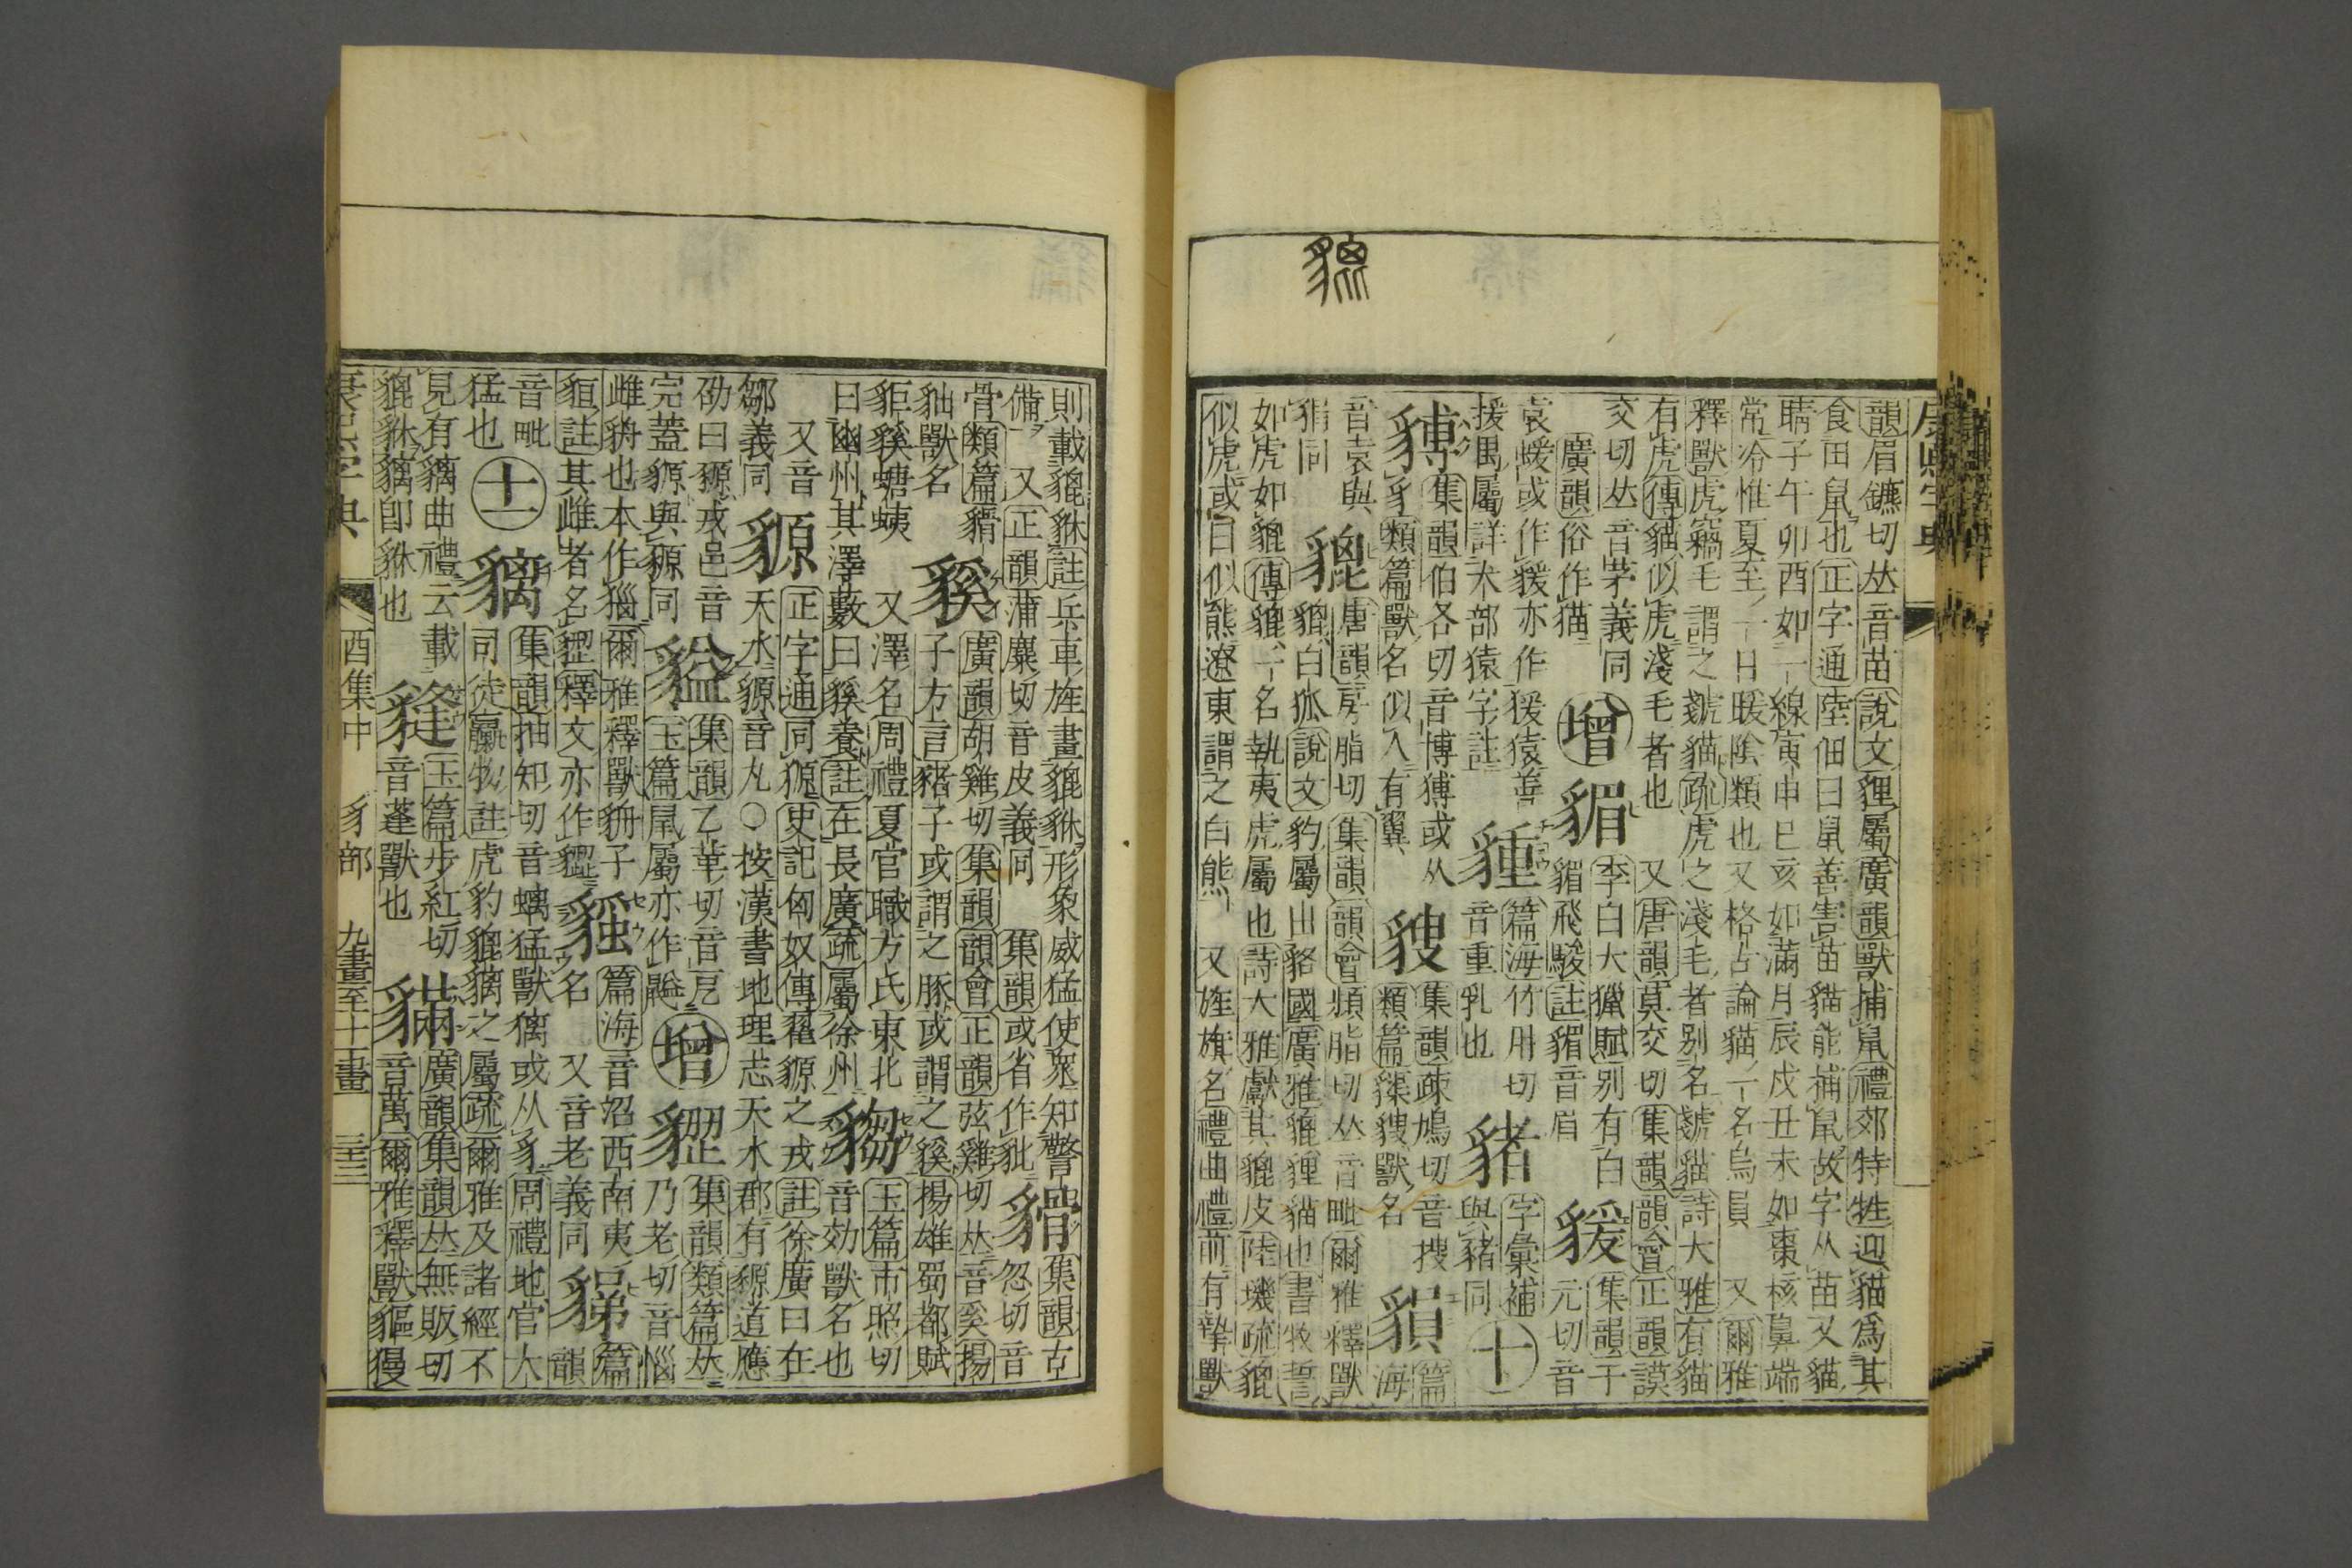 韻眉鑣切𠀤音苗說文貍屬廣韻獸捕鼠禮郊特牲迎貓爲其
食田鼠也正字通陸佃曰鼠善害苗貓能捕鼠故字从苗又貓
睛子午卯酉如一線寅申巳亥如滿月辰戌丑未如棗核鼻端
常冷惟夏至一日暖陰類也又格古論貓一名烏員 又爾雅
釋獸虎竊毛謂之虦貓疏虎之淺毛者别名虦貓詩大雅有貓
有虎傳貓似虎淺毛者也 又唐韻莫交切集韻韻會正韻謨
交切𠀤音茅義同
廣韻俗作猫
增
李白大獵賦别有白
飛駿註 音眉
集韻于
元切音
袁蝯或作 亦作猨猿善
援禺屬詳犬部猿字註
篇海竹用切
音重乳也
字彙補
與豬同
十
集韻伯各切音博猼或从
豸類篇獸名似人有翼
集韻疎鳩切音搜
類篇 獸名
篇
海
音袁與
同
貔
唐韻房脂切集韻韻會頻脂切𠀤音毗爾雅釋獸
貔白狐說文豹屬出貉國廣雅貔貍貓也書牧誓
如虎如貔傳貔一名執夷虎屬也詩大雅獻其貔皮陸璣疏貔
似虎或曰似熊遼東謂之白熊 又旌旗名禮曲禮前有摯獸
則載貔貅註兵車旌畫貔貅形象威猛使衆知警
備 又正韻蒲麋切音皮義同 集韻或省作豼
集韻古
忽切音
骨類篇
獸名
貕
廣韻胡雞切集韻韻會正韻弦雞切𠀤音奚揚
子方言豬子或謂之豚或謂之貕揚雄蜀都賦
貕螗蛦 又澤名周禮夏官職方氏東北
曰幽州其澤藪曰貕養註在長廣疏屬徐州
玉篇市照切
音効獸名也
又音
鄒義同
豲
正字通同獂史記匈奴傳翟豲之戎註徐廣曰在
天水豲音丸〇按漢書地理志天水郡有豲道應
劭曰豲戎邑音
完蓋豲與獂同
集韻乙革切音戹
玉篇鼠屬亦作
增
集韻類篇𠀤
乃老切音惱
雌貈也本作 爾雅釋獸貈子
貆註其雌者名 釋文亦作
篇海音 西南夷
名 又音老義同
篇
韻
音毗
猛也
十一
集韻抽知切音螭猛獸 或从豸周禮地官大
司徒臝物註虎豹貔 之屬疏爾雅及諸經不
見有 曲禮云載
貔貅 卽貅也
玉篇步紅切
音蓬獸也
廣韻集韻𠀤無販切
音萬爾雅釋獸貙獌
康熙字典 酉集中 豸部 九畫至十一畫